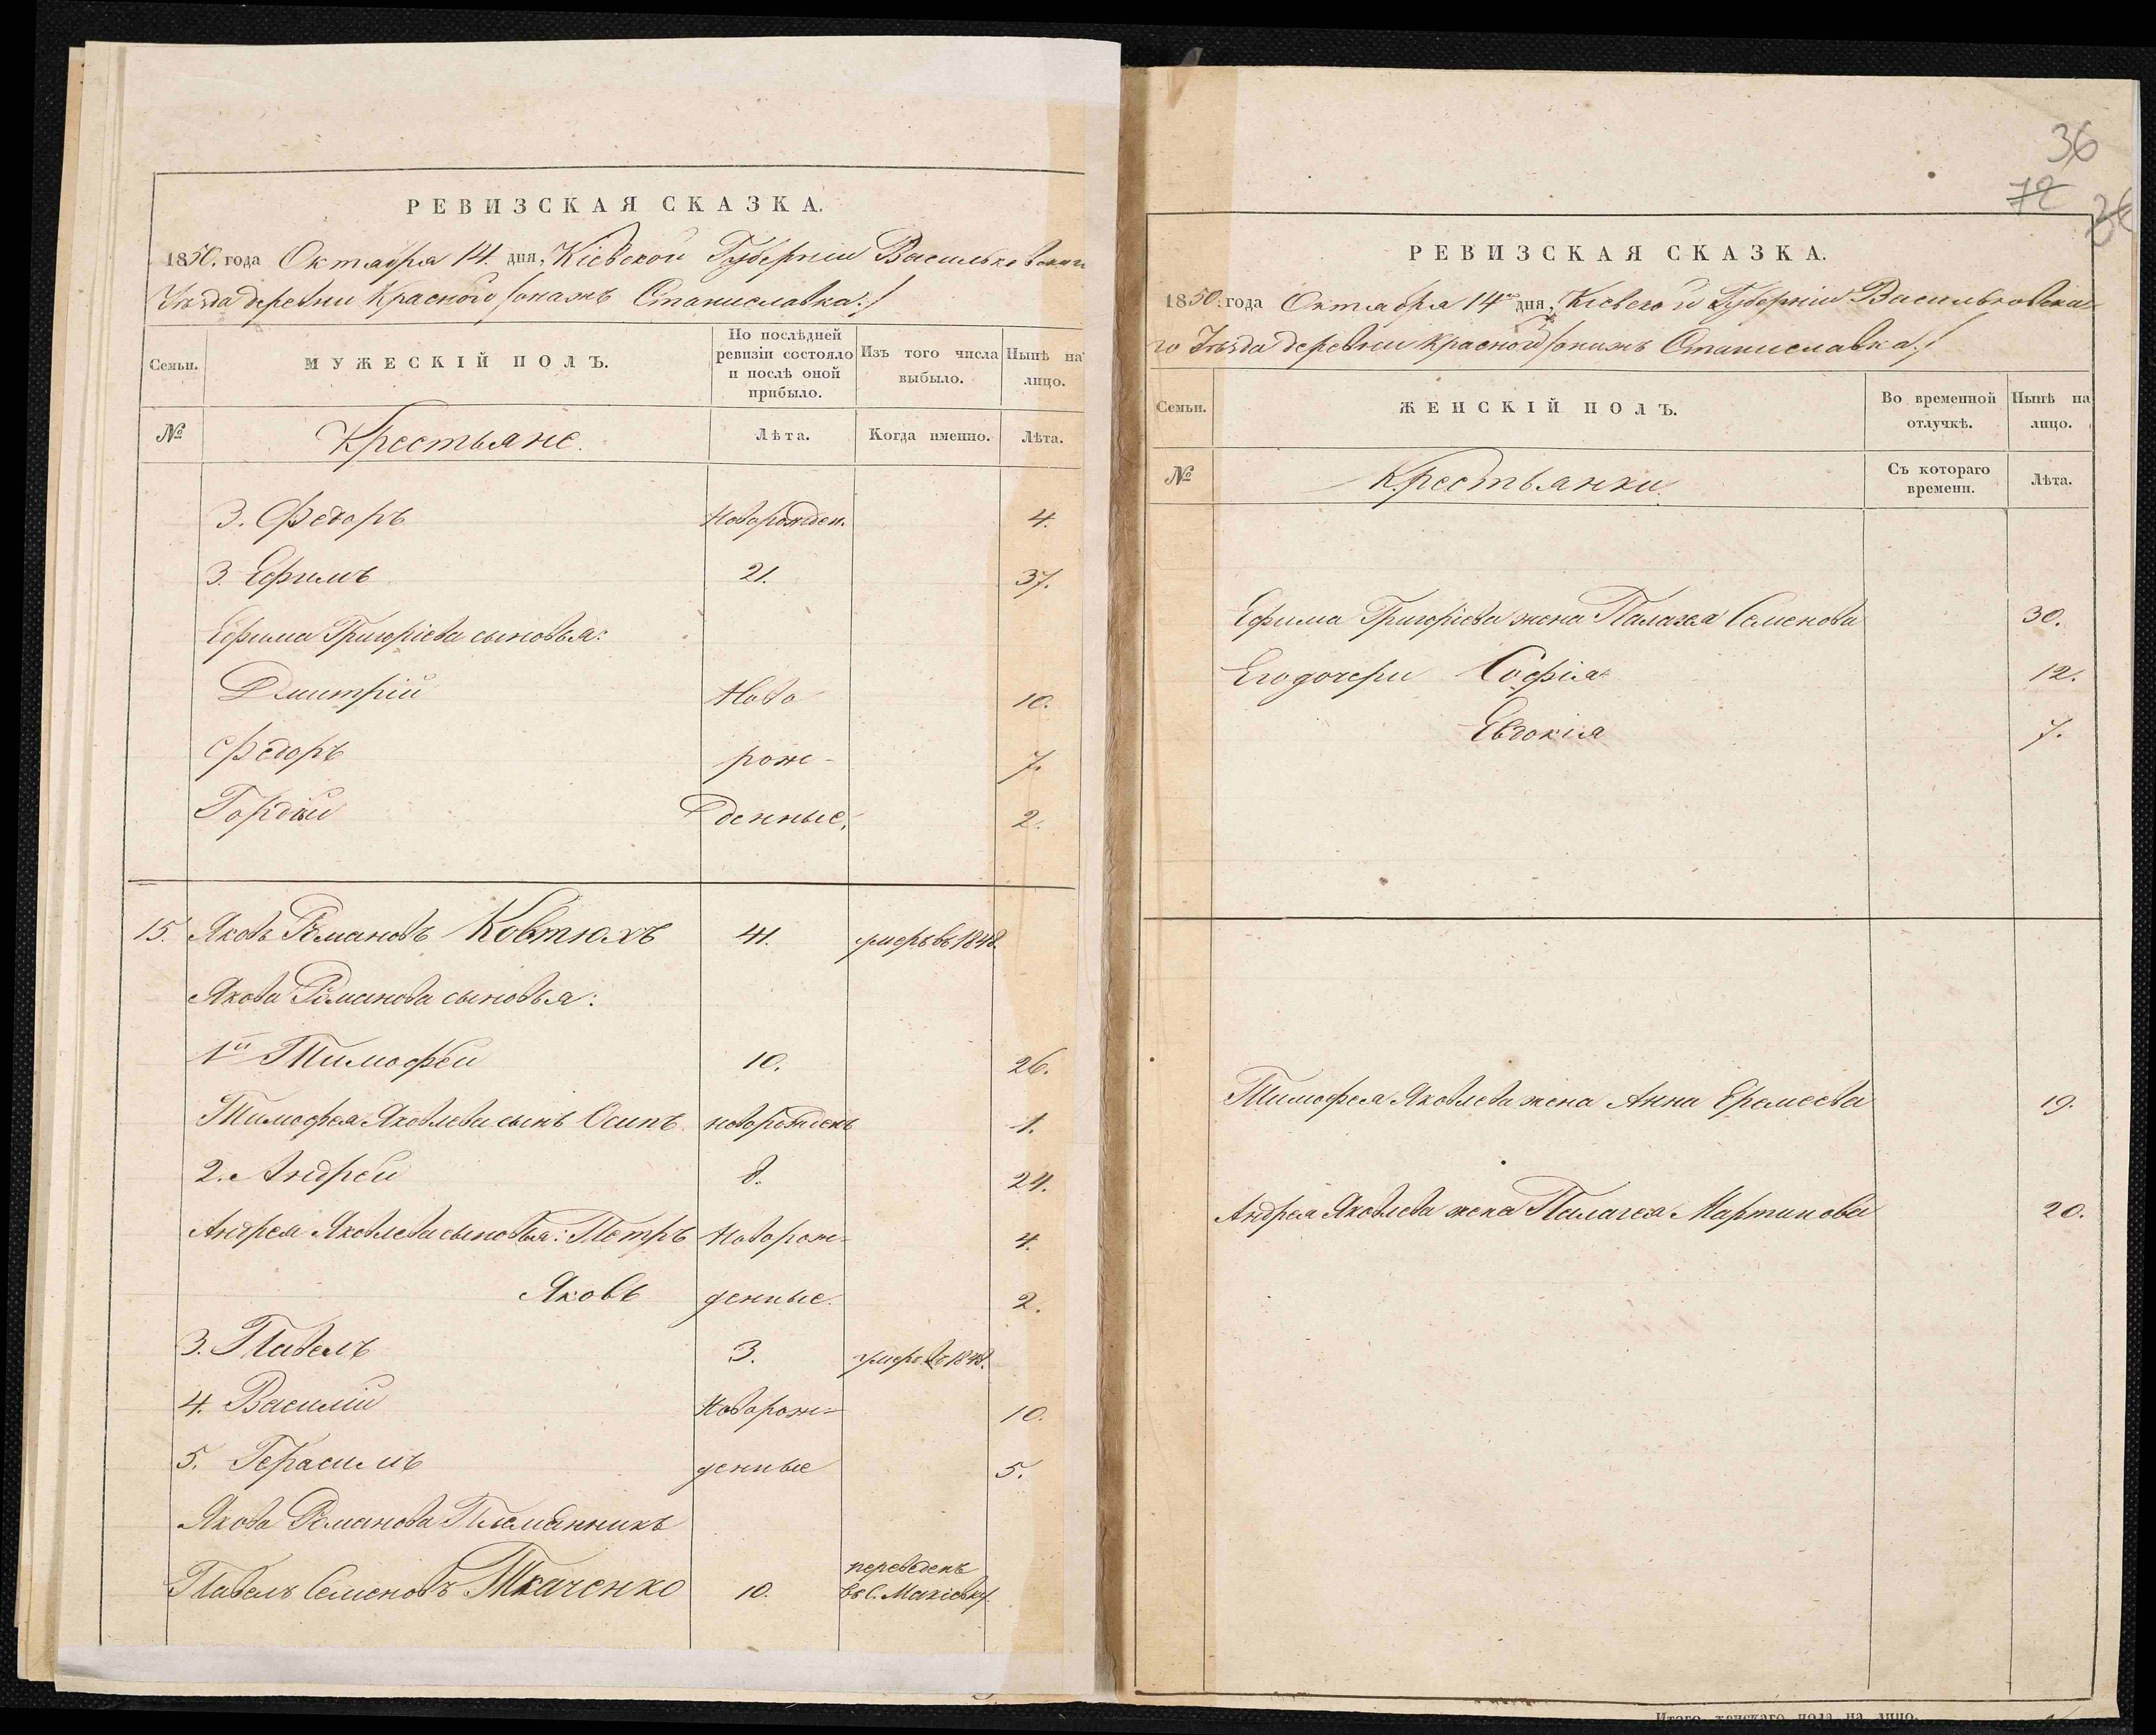 РЕВИЗСКАЯ СКАЗКА.
1850. года Октября 14. дня, Кіевской Губерніи Васильковскаго
Уѣзда деревни Красного /онажъ Станиславка:/
Семьи.
МУЖЕСКІЙ ПОЛЪ.
По послѣдней ревизіи состояло и послѣ оной прибыло.
Изъ того числа выбыло.
Нынѣ на лицо.
№
Крестьяне.
Лѣта.
Когда именно.
Лѣта.
3. Федоръ Новорожден. 4.
3. Ефимъ 21. 37.
Ефима Григоріева сыновья:
Дмитрій Ново 10.
Федоръ рож- 7.
Гордѣй денные. 2.
15. Яковъ Романовъ Ковтюхъ 41. умеръ въ 1848.
Якова Романова сыновья:
1й Тимофей 10. 26.
Тимофея Яковлева сынъ Осипъ новорожденъ 1.
2. Андрей 8. 24.
Андрея Яковлева сыновья: Петръ Новорож= 4.
Яковъ денные. 2.
3. Павелъ 3. умеръ въ 1848.
4. Василій Новорож= 10.
5. Герасимъ денные 5.
Якова Романова Племянникъ
Павелъ Семеновъ Ткаченко 10. переведенъ въ С. Махіевку.
36
72
36
РЕВИЗСКАЯ СКАЗКА.
1850. года Октября 14го дня, Кіевской Губерніи Васильковска=
го Уѣзда деревни Красного /онажъ Станиславка:/
Семьи.
ЖЕНСКІЙ ПОЛЪ.
Во временной отлучкѣ.
Нынѣ на лицо.
№
Крестьянки.
Съ котораго времени.
Лѣта.
Ефима Григоріева жена Палагея Семенова 30.
Его дочери Софія 12.
Евдокія 7.
Тимофея Яковлева жена Анна Еремеева 19.
Андрея Яковлева жена Палагея Мартинова 20.
Итого женскаго пола на лицо.